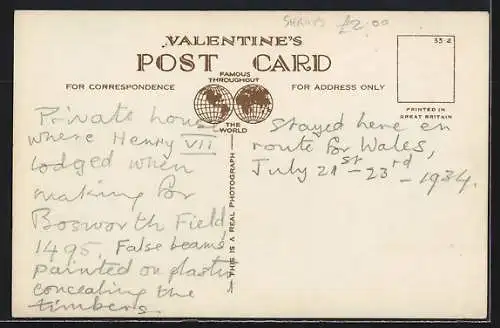 SHROPS £2.00
VALENTINE'S
POST CARD
FAMOUS
THROUGHOUT
THE
WORLD
FOR CORRESPONDENCE
FOR ADDRESS ONLY
PRINTED IN
GREAT BRITAIN
THIS IS A REAL PHOTOGRAPH
Private house
where Henry VII
lodged when
making for
Bosworth Field,
1495. False beams
painted on plaster
concealing the
timbers.
Stayed here en
route for Wales,
July 21st - 23rd - 1934.